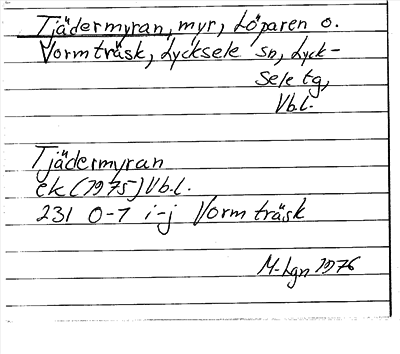 Tjädermyran, myr, Löparen o.
Vormträsk, Lycksele sn, Lyck-
sele tg,
Vb.l.
Tjädermyran
ek (1975) Vb.l.
231 0-1 i-j Vormträsk
M-Lgn 1976